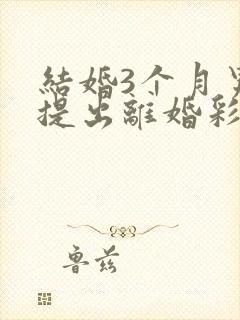 結婚3个月
提出離婚彩
魯茲